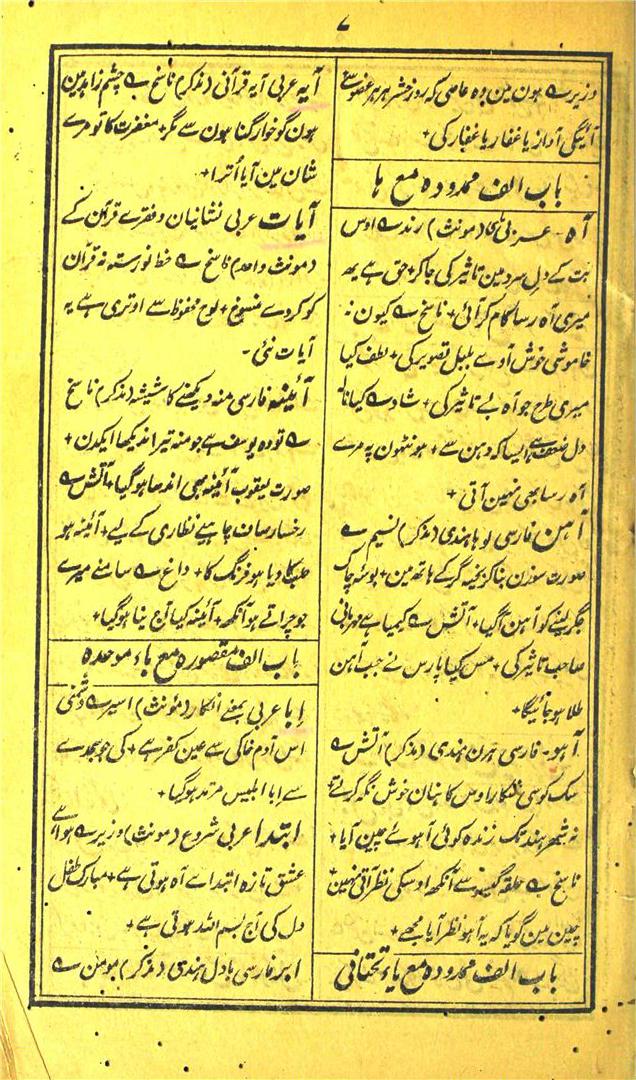 ۷
وزیر ے ہون مین وہ عاصی کہ روز حشر ہر ہر عضو سے
آئیگی آواز یا غفار یا غفار کی +
باب الف ممدودہ مع ہا
آہ - عربی (مونث) رند ے اوس
بت کے دل سرد مین تاثیر کی جا کر + حق ہے یہ
میری آہ رسا کام کر آئی + ناسخ ے کیون نہ
خاموشی خوش آوے بلبل تصویر کی + لطف کیا
میری طرح جو آہ بے تاثیر کی + شاد ے کیا نالۂ
دل ضعف سے ایسا کہ دہن سے + ہونٹھون پہ مرے
آہ رسا بھی نہین آتی +
آہن فارسی لوہا ہندی (مذکر) نسیم ے
صورت سوزن بنا کر بخیہ گر کے ہاتھ مین + بوسۂ چاک
جگر لینے کو آہن آگیا + آتش ے کیمیا ہے مہربانی
صاحب تاثیر کی + مس کیا پارس نے جب آہن
طلا ہو جائیگا +
آہو - فارسی ہرن ہندی (مذکر) آتش ے
سگ کوسی شکار اوس کا نہان خوش نگہ کرتے
نہ شہر ہند تک زندہ کوئی آہوے چین آیا +
ناسخ ے حلقہ گیسو سے آنکھ اوسکی نظر آتی نہین +
چین مین گویا کہ یہ آہو نظر آیا مجھے +
باب الف ممدودہ مع یاء تحتانی
آیہ عربی آیہ قرآنی (مذکر) ناسخ ے چشم زاہد مین
ہون گو خوار گناہون سے مگر + مغفرت کا تو مرے
شان مین آیا اُترا +
آیات عربی نشانیان و فقرے قرآن کے
(مونث واحد) ناسخ ے خط نورستہ نہ قرآن
کو کردے منسوخ + لوح محفوظ سے اوتری ہے یہ
آیات نئی -
آئینہ فارسی منہ دیکھنے کا شیشہ (مذکر) ناسخ
ے تو وہ یوسف ہے جو منہ تیرا نہ دیکھا ایکدن +
صورت یعقوب آئینہ بھی اندھا ہو گیا + آتش ے
رخسار صاف چاہیے نظاری کے لیے + آئینہ ہو
حلب کا دیا ہو فرنگ کا + داغ ے سامنے میرے
جو چراتے ہو آنکھ + آئینہ کیا آج نیا ہو گیا +
باب الف مقصورہ مع باء موحدہ
اِبا عربی بمعنے انکار (مونث) اسیر ے دشمنی
اس آدم خاکی سے عین کفر ہے + کی جو سجدے
سے ابا ابلیس مرتد ہو گیا +
ابتدا عربی شروع (مونث) وزیر ے ہوا سے
عشق تازہ ابتداے آہ ہوتی ہے + مبارک طفل
دل کی آج بسم اللہ ہوتی ہے +
ابر فارسی بادل ہندی (مذکر) مومن ے